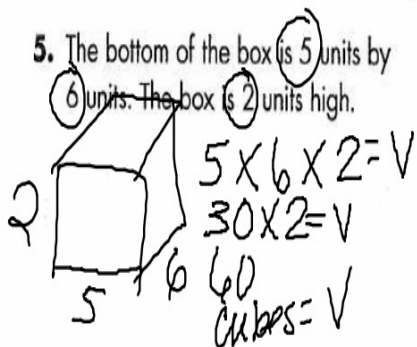 5. The bottom of the box is 5 units by
6 units. The box is 2 units high.
5 X 6 X 2 = V
2
30 X 2 = V
6 60
5
cubes = V